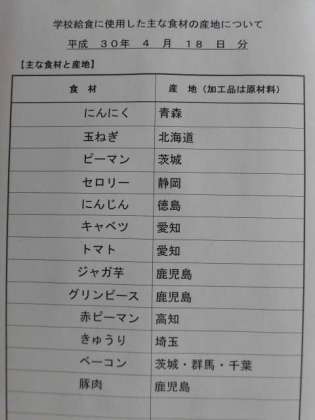 学校給食に使用した主な食材の産地について
平成 30年 4 月 18 日 分
【主な食材と産地】
食 材 産 地（加工品は原材料）
にんにく 青森
玉ねぎ 北海道
ピーマン 茨城
セロリー 静岡
にんじん 徳島
キャベツ 愛知
トマト 愛知
ジャガ芋 鹿児島
グリンピース 鹿児島
赤ピーマン 高知
きゅうり 埼玉
ベーコン 茨城・群馬・千葉
豚肉 鹿児島